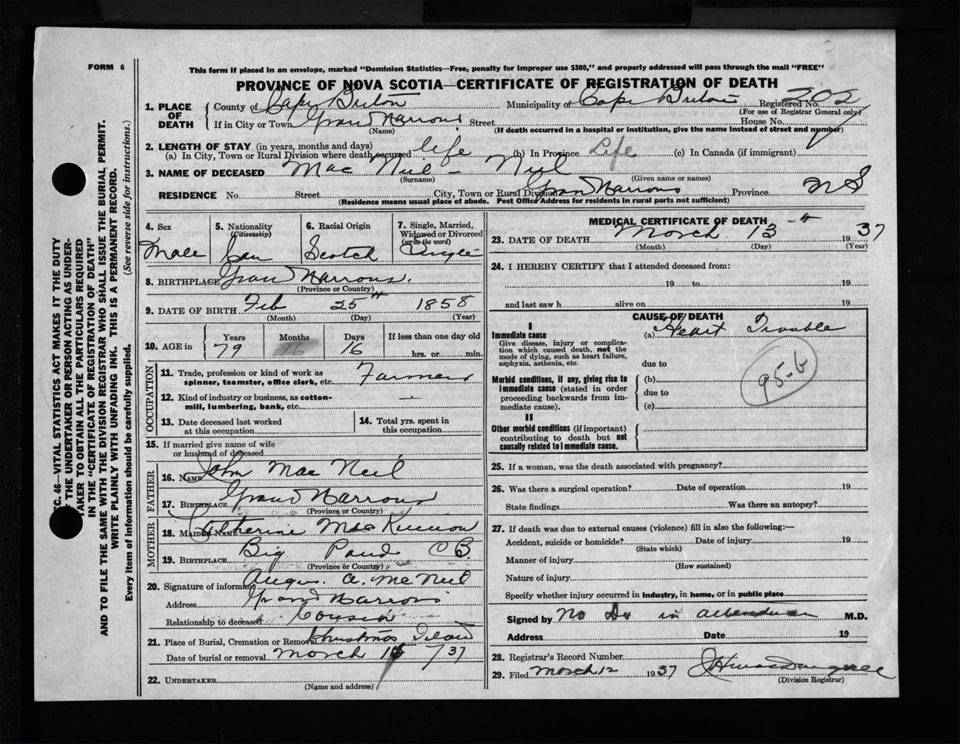 FORM 6
This form if placed in an envelope, marked "Dominion Statistics—Free, penalty for improper use $300," and properly addressed will pass through the mail "FREE"
PROVINCE OF NOVA SCOTIA—CERTIFICATE OF REGISTRATION OF DEATH
1. PLACE OF DEATH County of Cape Breton Municipality of Cape Breton Registered No. 202
(For use of Registrar General only)
If in City or Town Grand Narrows Street House No.
(Name) (If death occurred in a hospital or institution, give the name instead of street and number)
2. LENGTH OF STAY (in years, months and days)
(a) In City, Town or Rural Division where death occurred life (b) In Province Life (c) In Canada (if immigrant)
3. NAME OF DECEASED Mac Neil - Neil
(Surname) (Given name or names)
RESIDENCE No. Street City, Town or Rural Division Grand Narrows Province N S
(Residence means usual place of abode. Post Office Address for residents in rural parts not sufficient)
SEC. 46—VITAL STATISTICS ACT MAKES IT THE DUTY
OF THE UNDERTAKER OR PERSON ACTING AS UNDER-
TAKER TO OBTAIN ALL THE PARTICULARS REQUIRED
IN THE "CERTIFICATE OF REGISTRATION OF DEATH"
AND TO FILE THE SAME WITH THE DIVISION REGISTRAR WHO SHALL ISSUE THE BURIAL PERMIT.
WRITE PLAINLY WITH UNFADING INK. THIS IS A PERMANENT RECORD.
Every item of information should be carefully supplied. (See reverse side for instructions.)
4. Sex 5. Nationality (Citizenship) 6. Racial Origin 7. Single, Married, Widowed or Divorced (write the word)
Male Can Scotch Single
8. BIRTHPLACE Grand Narrows.
(Province or Country)
9. DATE OF BIRTH Feb 25th 1858
(Month) (Day) (Year)
10. AGE in Years Months Days If less than one day old
79 16 hrs. or min.
OCCUPATION
11. Trade, profession or kind of work as spinner, teamster, office clerk, etc. Farmer
12. Kind of industry or business, as cotton-mill, lumbering, bank, etc. —
13. Date deceased last worked at this occupation 14. Total yrs. spent in this occupation.
15. If married give name of wife or husband of deceased
FATHER
16. NAME John Mac Neil
17. BIRTHPLACE Grand Narrows
(Province or Country)
MOTHER
18. MAIDEN NAME Catherine MacKinnon
19. BIRTHPLACE Big Pond C B.
(Province or Country)
20. Signature of informant Angus A. McNeil
Address Grand Narrows
Relationship to deceased Cousin
21. Place of Burial, Cremation or Removal Christmas Island
Date of burial or removal March /37
22. UNDERTAKER
(Name and address)
MEDICAL CERTIFICATE OF DEATH
23. DATE OF DEATH March 13th 1937
(Month) (Day) (Year)
24. I HEREBY CERTIFY that I attended deceased from:
19 to 19
and last saw h alive on 19
CAUSE OF DEATH
I
Immediate cause (a) Heart Trouble
Give disease, injury or complication which caused death, not the mode of dying, such as heart failure, asphyxia, asthenia, etc. due to
Morbid conditions, if any, giving rise to immediate cause (stated in order proceeding backwards from immediate cause). (b)
due to
(c)
95-b
II
Other morbid conditions (if important) contributing to death but not causally related to immediate cause.
25. If a woman, was the death associated with pregnancy?
26. Was there a surgical operation? Date of operation 19
State findings Was there an autopsy?
27. If death was due to external causes (violence) fill in also the following:—
Accident, suicide or homicide? Date of injury 19
(State which)
Manner of injury
(How sustained)
Nature of injury
Specify whether injury occurred in industry, in home, or in public place
Signed by No Dr in attendance M.D.
Address Date 19
28. Registrar's Record Number
29. Filed March 12 1937
(Division Registrar)